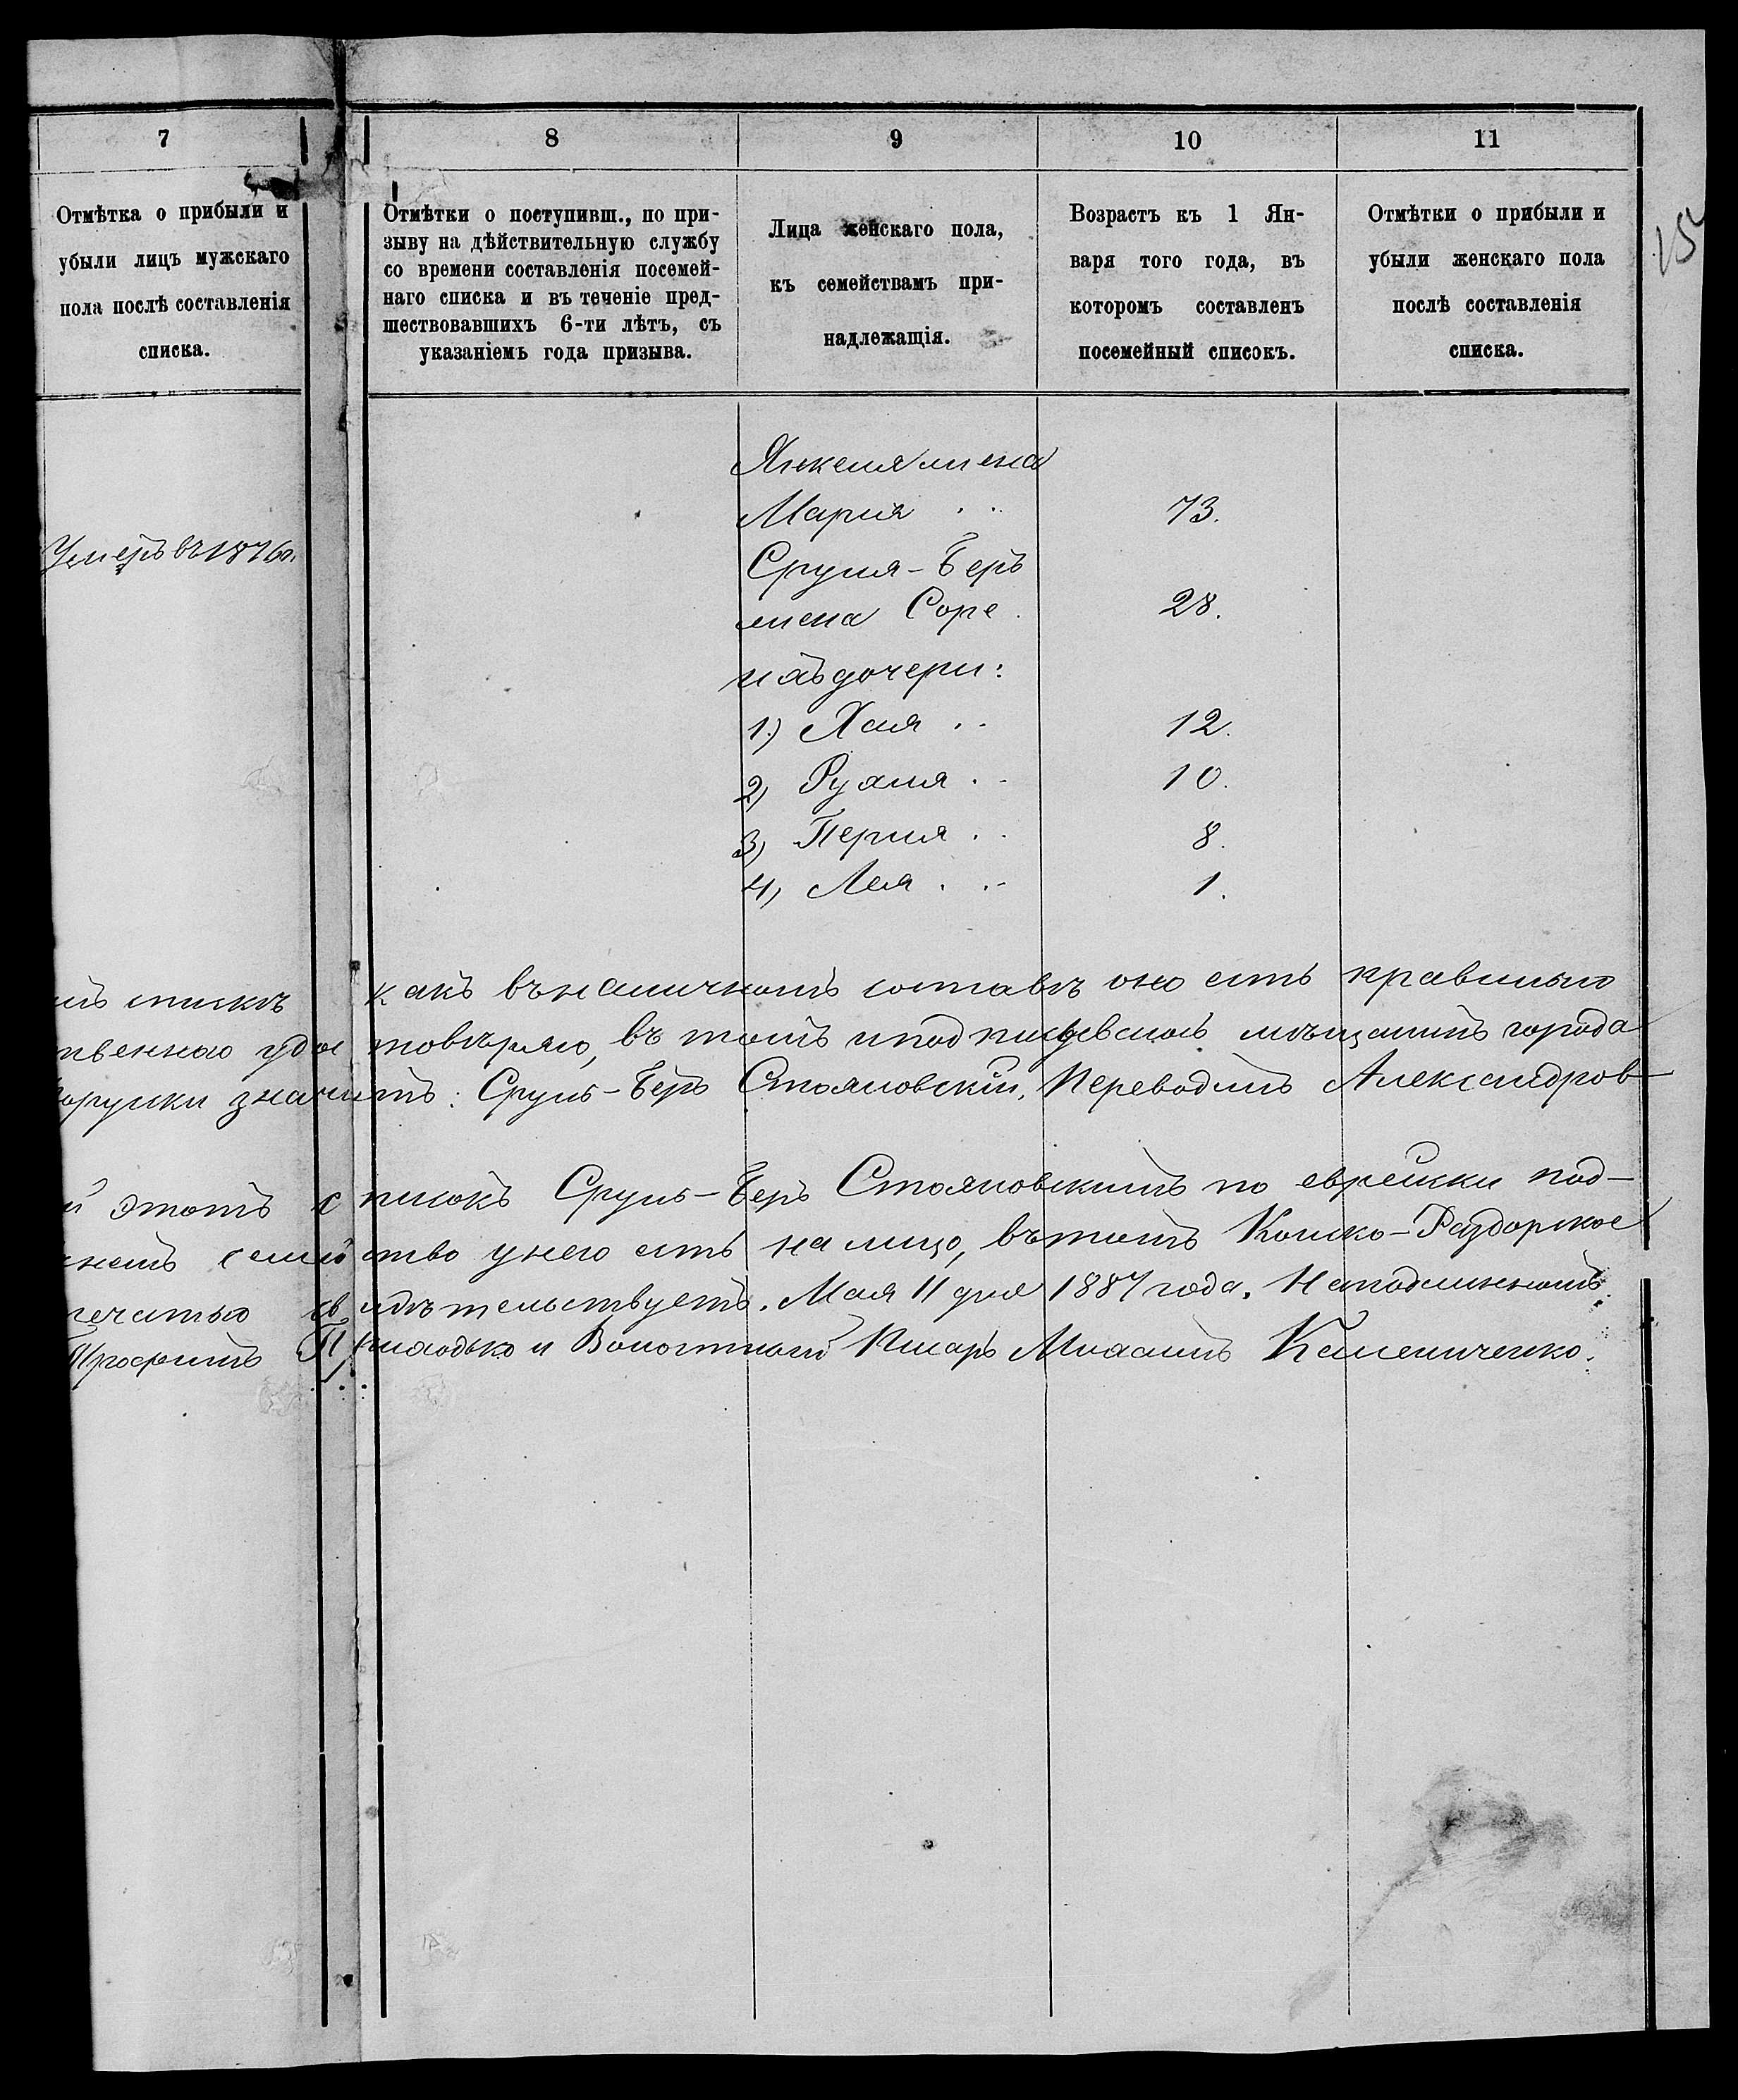 7
8
9
10
11
Отмѣтка о прибыли и
убыли лицъ мужскаго
пола послѣ составленія
списка.
Отмѣтки о поступивш., по при-
зыву на дѣйствительную службу
со времени составленія посемей-
наго списка и въ теченіе пред-
шествовавшихъ 6-ти лѣтъ, съ
указаніемъ года призыва.
Лица женскаго пола,
къ семействамъ при-
надлежащія.
Возрастъ къ 1 Ян-
варя того года, въ
которомъ составленъ
посемейный списокъ.
Отмѣтки о прибыли и
убыли женскаго пола
послѣ составленія
списка.
15
Янкеля жена
Марія . . 73.
Умеръ въ 1876 г.
Сруля-Беръ
жена Соре . 28.
ихъ дочери:
1.) Хая . . 12.
2) Рухля . . 10.
3) Перля . . 8.
4) Лея . . 1.
мъ спискѣ какъ въ наличномъ составѣ оно есть правильно
твенною удостовѣряю, въ томъ и подписуюсь мѣщанинъ города
орушки значитъ: Сруль-Беръ Стояновскій. Переводилъ Александров-
й этотъ списокъ Сруль-Беръ Стояновскимъ по еврейски под-
семейство у него есть на лицо, въ томъ Конско-Раздорское
печатью свидѣтельствуетъ. Мая 11 дня 1887 года. На подлинномъ:
Проходько и Волостной Писарь Михаилъ Камениченко.